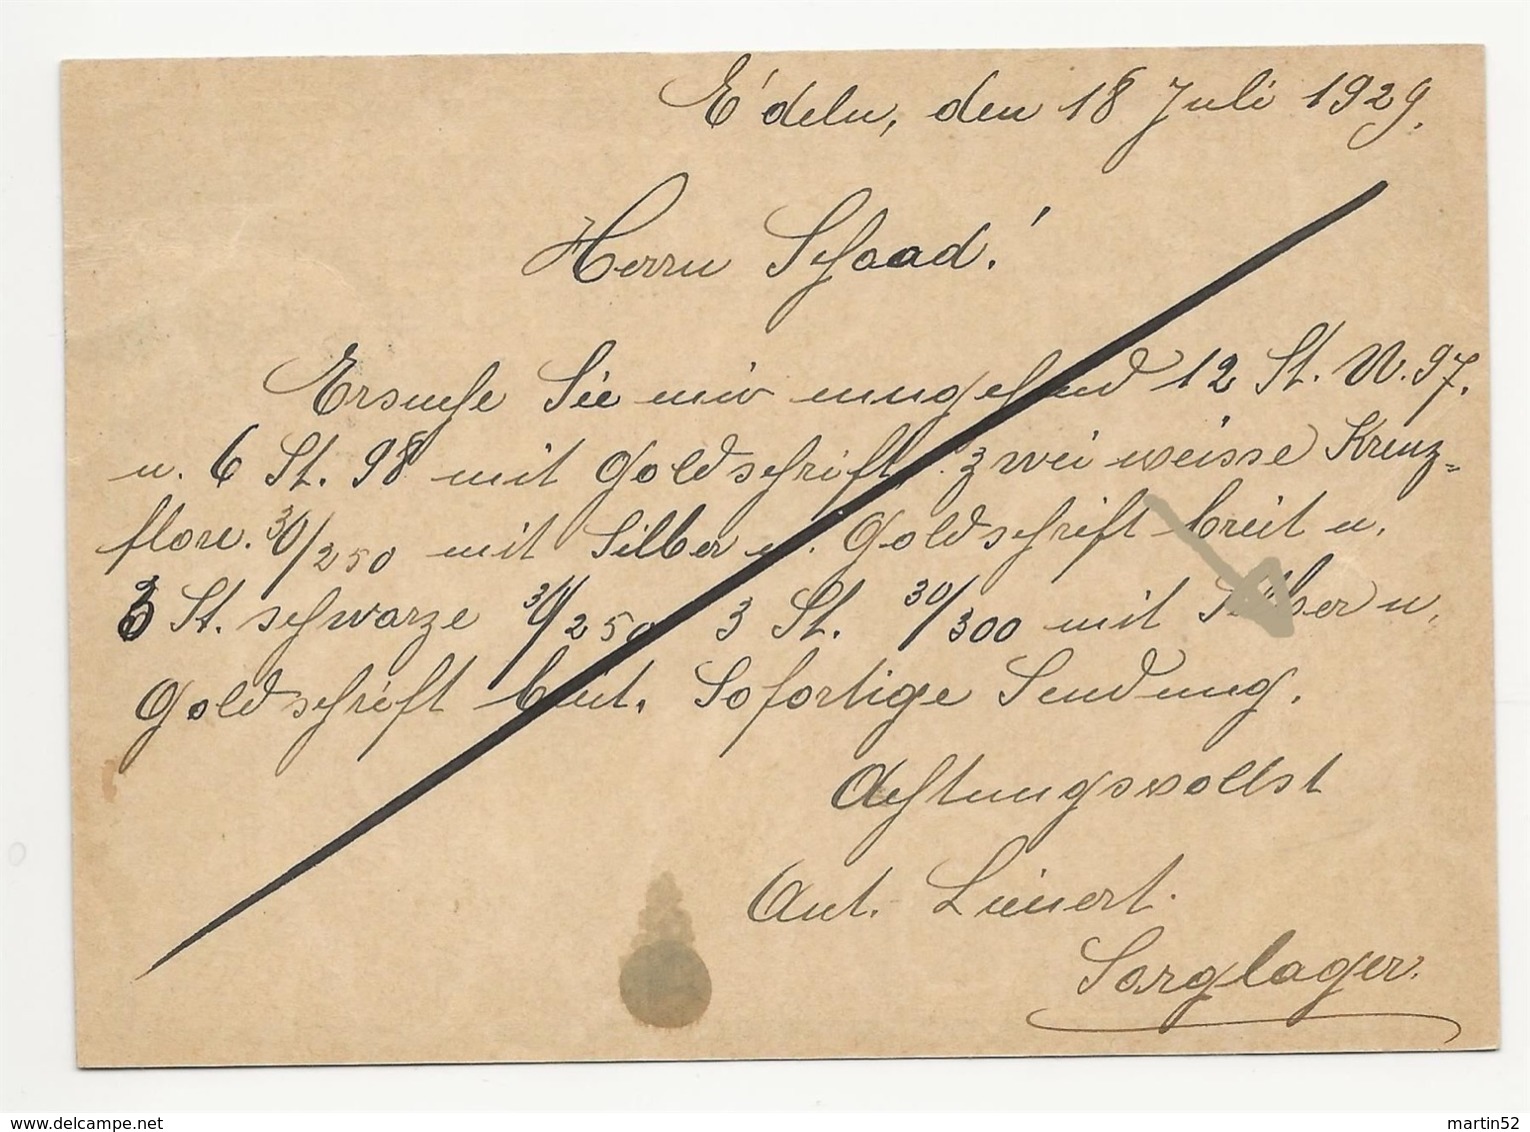 E'deln, den 18 Juli 1929.
Herrn Schaad!
Ersuche Sie mir umgehend 12 St. N. 97.
u. 6 St. 98 mit Goldschrift. zwei weisse Kreuz=
flore. 30/250 mit Silber u. Goldschrift breit u.
3 St. schwarze 30/250 3 St. 30/300 mit Silber u.
Goldschrift breit. Sofortige Sendung.
Achtungsvollst
Ant. Lienert.
Sarglager.
delcampe.net
martin52